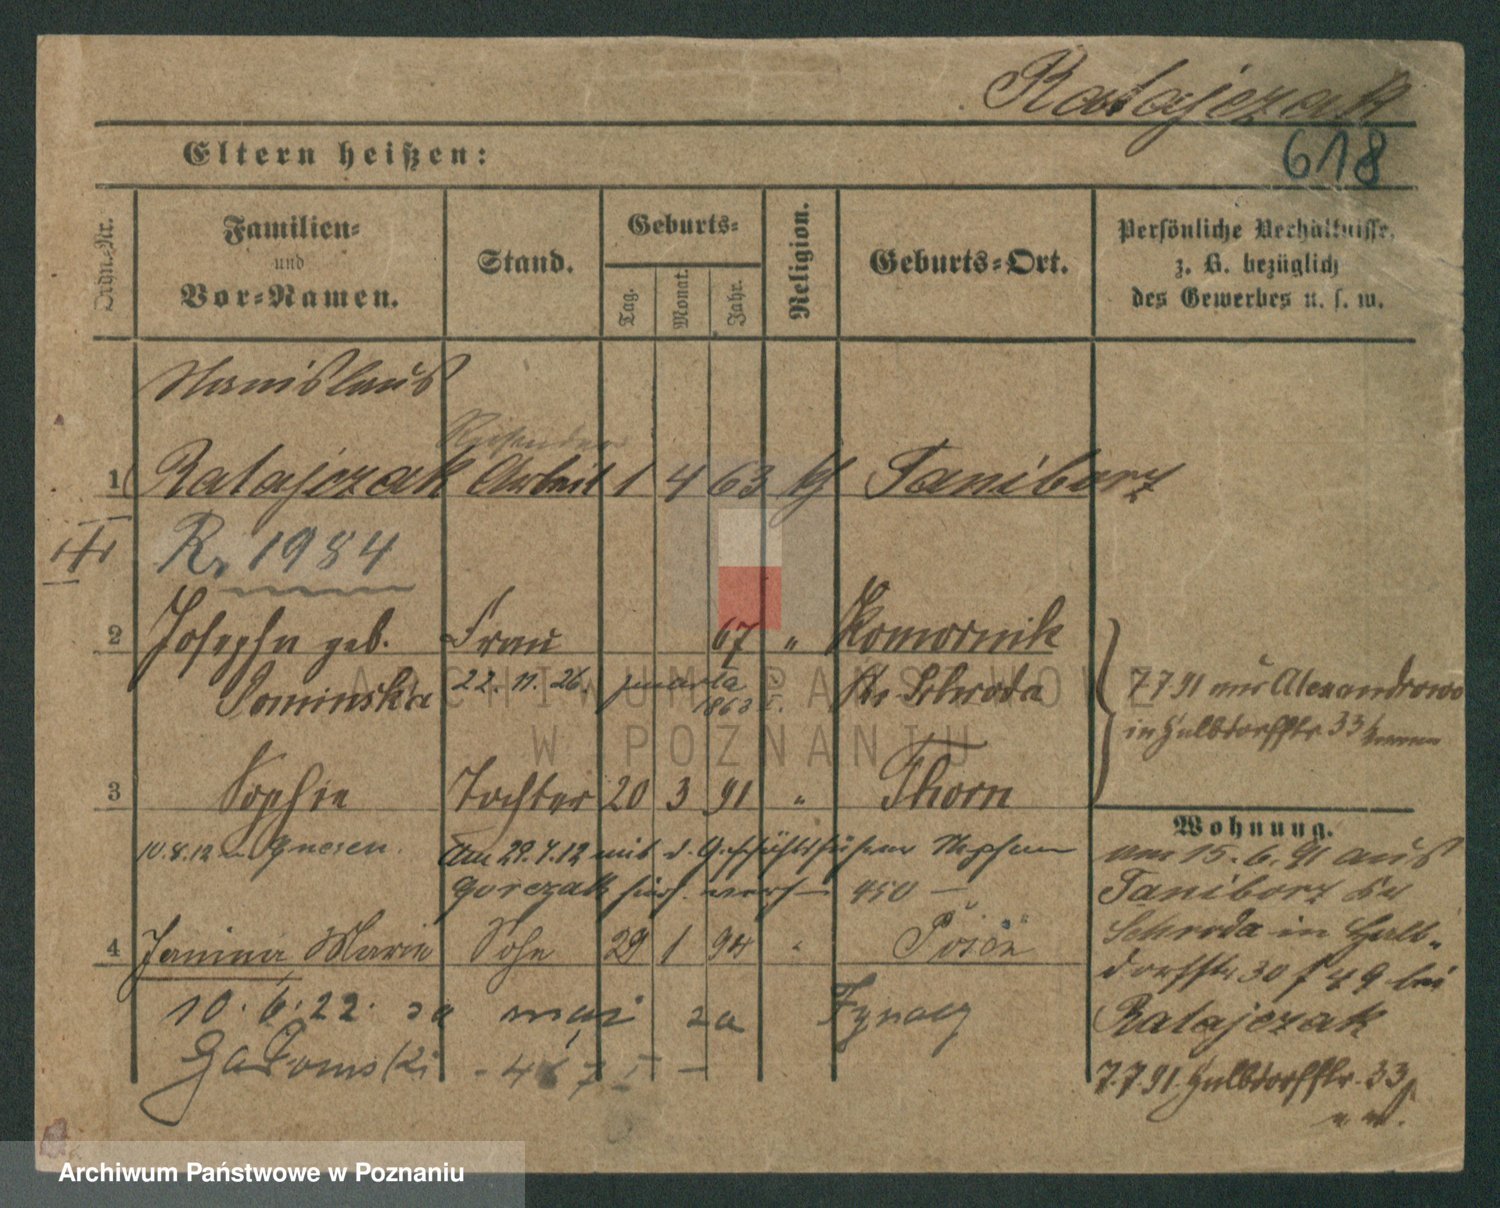 Ratajczak
618
Eltern heißen:
Ordn.-Nr.
Familien-
und
Vor-Namen.
Stand.
Geburts-
Tag.
Monat.
Jahr.
Religion.
Geburts-Ort.
Persönliche Verhältnisse,
z. B. bezüglich
des Gewerbes u. s. w.
Stanislaus
1 Ratajczak Arbeit 1 4 63 k Taniborz
III
R. 1984
2 Josepha geb. Frau 67 " Komornik
Dominska 22. 11. 26. 1863 Kr. Schroda
7 7 91 aus Alexandrowo
in Halbdorffstr 33
3 Sophie Tochter 20 3 91 " Thorn
10.8.12 n. Gnesen. Am 29.7.12 mit d.
Gorczak 450 —
4 Janina Marie Sohn 29 1 94 " Posen
10. 6. 22. za mąż za Ignacy
Gadomski - 467 I -
Wohnung.
am 15. 6. 91 aus
Taniborz Kr
Schroda in Halb-
dorffstr 30 f 49 bei
Ratajczak
7.7 91. Halbdorffstr. 33
ARCHIWUM PAŃSTWOWE
W POZNANIU
Archiwum Państwowe w Poznaniu